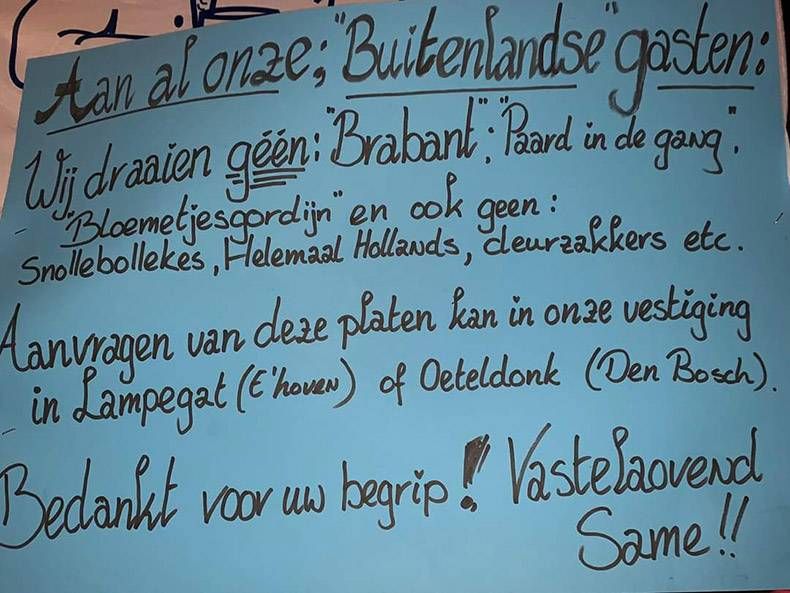 Aan al onze; "Buitenlandse" gasten:
Wij draaien géén: "Brabant"; "Paard in de gang",
"Bloemetjesgordijn" en ook geen:
Snollebollekes, Helemaal Hollands, deurzakkers etc.
Aanvragen van deze platen kan in onze vestiging
in Lampegat (E'hoven) of Oeteldonk (Den Bosch).
Bedankt voor uw begrip! Vastelaovend
Same!!